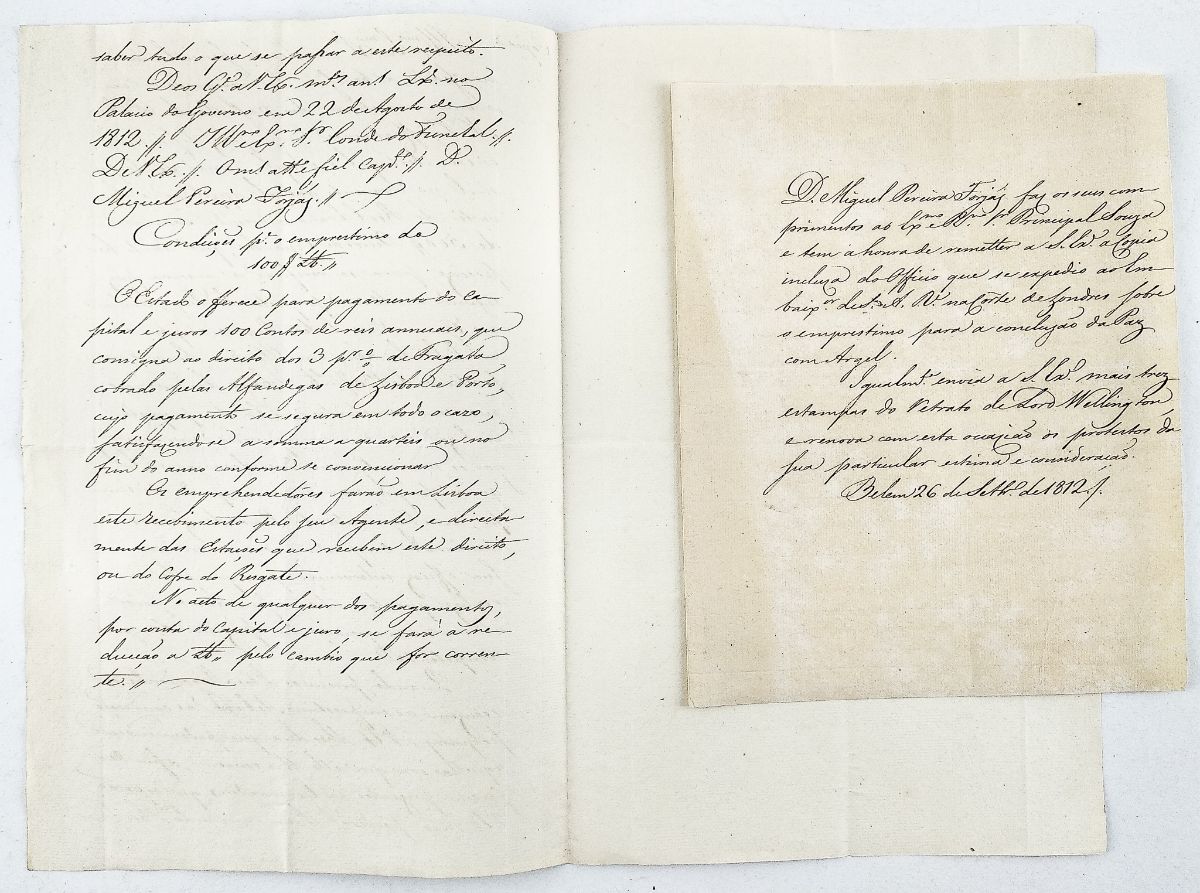 saber tudo o que se passar a este respeito.
Deos G.e a V. Ex. m.s an.s Lx.a no
Palacio do Governo em 22 de Agosto de
1812 // Ill.mo e Ex.mo S.r Conde do Funchal //
De V. Ex. // O m.to att.o e fiel Cap.vo // D.
Miguel Pereira Forjaz. //
Condiçoẽs p.a o emprestimo de
100 $ Lb. //
O Estado offerece para pagamento do ca-
pital e juros 100 Contos de reis annuais, que
consigna ao direito dos 3 p.r % de Fragata
cobrado pelas Alfandegas de Lisboa e Porto,
cujo pagamento se segura em todo o cazo,
satisfazendose a somma a quarteis ou no
fim do anno conforme se convencionar
Os emprehendedôres farão em Lisboa
este recebimento pelo seu Agente, e directa-
mente das Estaçoẽs que recebem este direito,
ou do Cofre do Resgate.
No acto de qualquer dos pagamentos,
por conta do Capital e juro, se fará a re-
ducção a Lb. pelo cambio que for corren-
te. //
D. Miguel Pereira Forjaz faz os seus com-
primentos ao Ex.mo e R.mo S.r Principal Souza
e tem a honra de remetter a S. Ex.a a Copia
incluza do Officio que se expedio ao Em-
baix.or de S. A. R. na Corte de Londres sobre
o emprestimo para a concluzão da Paz
com Argel.
Igualm.te envia a S. Ex.a mais trez
estampas do Retrato de Lord Wellington,
e renova com esta occazião os protestos da
sua particular estima e consideração.
Belem 26 de Setb.o de 1812. /.